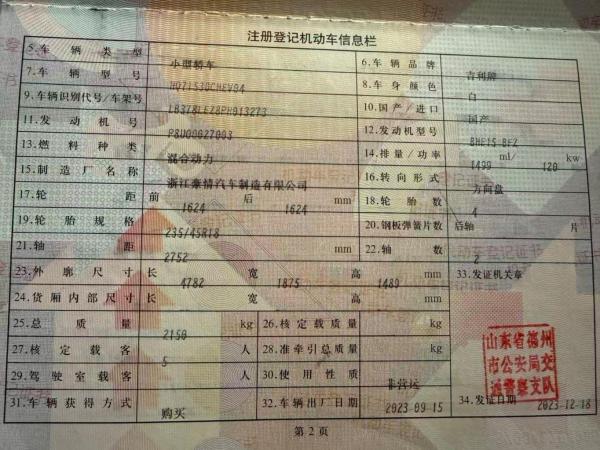 注册登记机动车信息栏
5.车辆类型 小型轿车 6.车辆品牌 吉利牌
7.车辆型号 HQ7153DCHEV94 8.车身颜色 白
9.车辆识别代号/车架号 LB378LEZ8PH913273 10.国产/进口 国产
11.发动机号 P8U00027003 12.发动机型号 BHE15-BFZ
13.燃料种类 混合动力 14.排量/功率 1499 ml/ 120 kw
15.制造厂名称 浙江豪情汽车制造有限公司 16.转向形式 方向盘
17.轮距 前 1624 后 1624 mm 18.轮胎数 4
19.轮胎规格 235/45R18 20.钢板弹簧片数 后轴 片
21.轴距 2752 mm 22.轴数 2
23.外廓尺寸 长 4782 宽 1875 高 1489 mm 33.发证机关章
24.货厢内部尺寸 长 宽 高 mm
25.总质量 2150 kg 26.核定载质量 kg
27.核定载客 5 人 28.准牵引总质量 kg
29.驾驶室载客 人 30.使用性质 非营运
31.车辆获得方式 购买 32.车辆出厂日期 2023-09-15 34.发证日期 2023-12-18
山东省德州
市公安局交
通警察支队
第2页